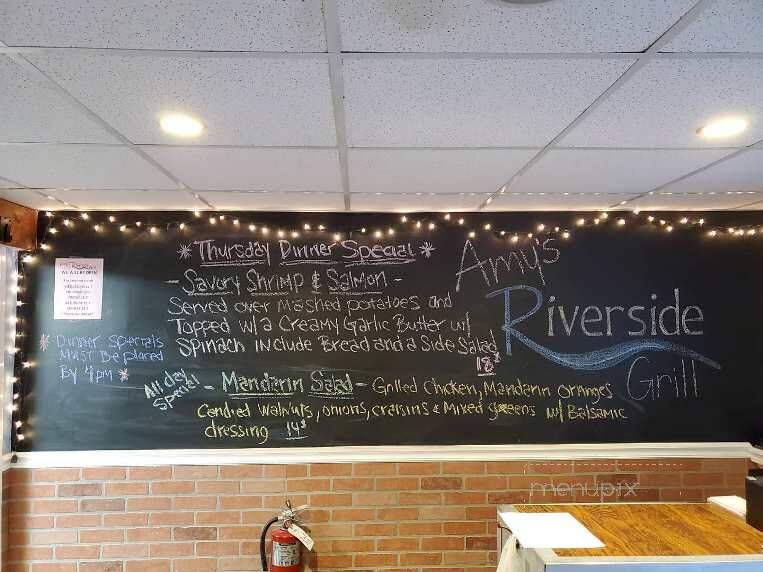 * Thursday Dinner Special *
- Savory Shrimp & Salmon -
Served over mashed potatoes and
Topped w/ a Creamy Garlic Butter w/
Spinach include Bread and a Side Salad
18$
* Dinner specials
Must Be placed
By 4pm *
All day
Special
- Mandarin Salad - Grilled Chicken, Mandarin oranges
Candied walnuts, onions, craisins & Mixed greens w/ Balsamic
dressing 14$
Amy's
Riverside
Grill
menupix